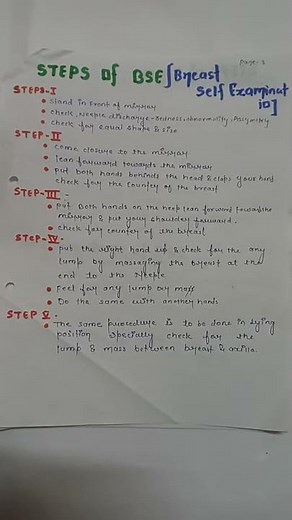 Page-3
STEPS of BSE [Breast
Self Examinat
ion]
STEPS-I
• Stand in front of mirror
• check, neeple discharge - Redness, abnormality, Asymetry
• check for equal shape & size
STEP-II
• come closure to the mirror
• lean forward towards the mirror
• put both hands behinds the head & clasp your hand
check for the counter of the breast
STEP-III -
• put Both hands on the heep lean forward towards the
mirror & put your shoulder forward.
• check for counter of the breast
STEP-IV-
• put the right hand up & check for the any
lump by massaging the breast at the
end to the neeple
• feel for any lump or mass
• Do the same with another hand
STEP V -
• The same procedure is to be done in lying
position specially check for the
lump & mass between breast & axilla.